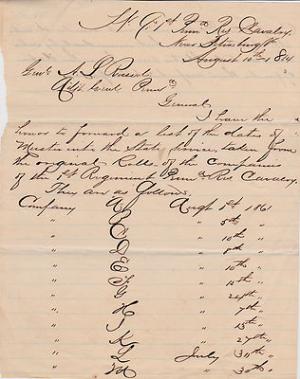 Hd Qrs 1st Penna Res Cavalry
Near Petersburg Va
August 10th 1864
Genl A. L. Russell
Adjt Genl Penna
General
I have the
honor to forward a list of the dates of
Muster into the State service, taken from
the original Rolls of the Companies
of the 1st Regiment Penna Res Cavalry.
They are as follows.
Company A Augh 1st 1861
" B " 5th "
" C " 10th "
" D " 8th "
" E " 10th "
" F " 10th "
" G " 24th "
" H " 7th "
" I " 15th "
" K " 27th "
" L July 30th "
" M " 30th "